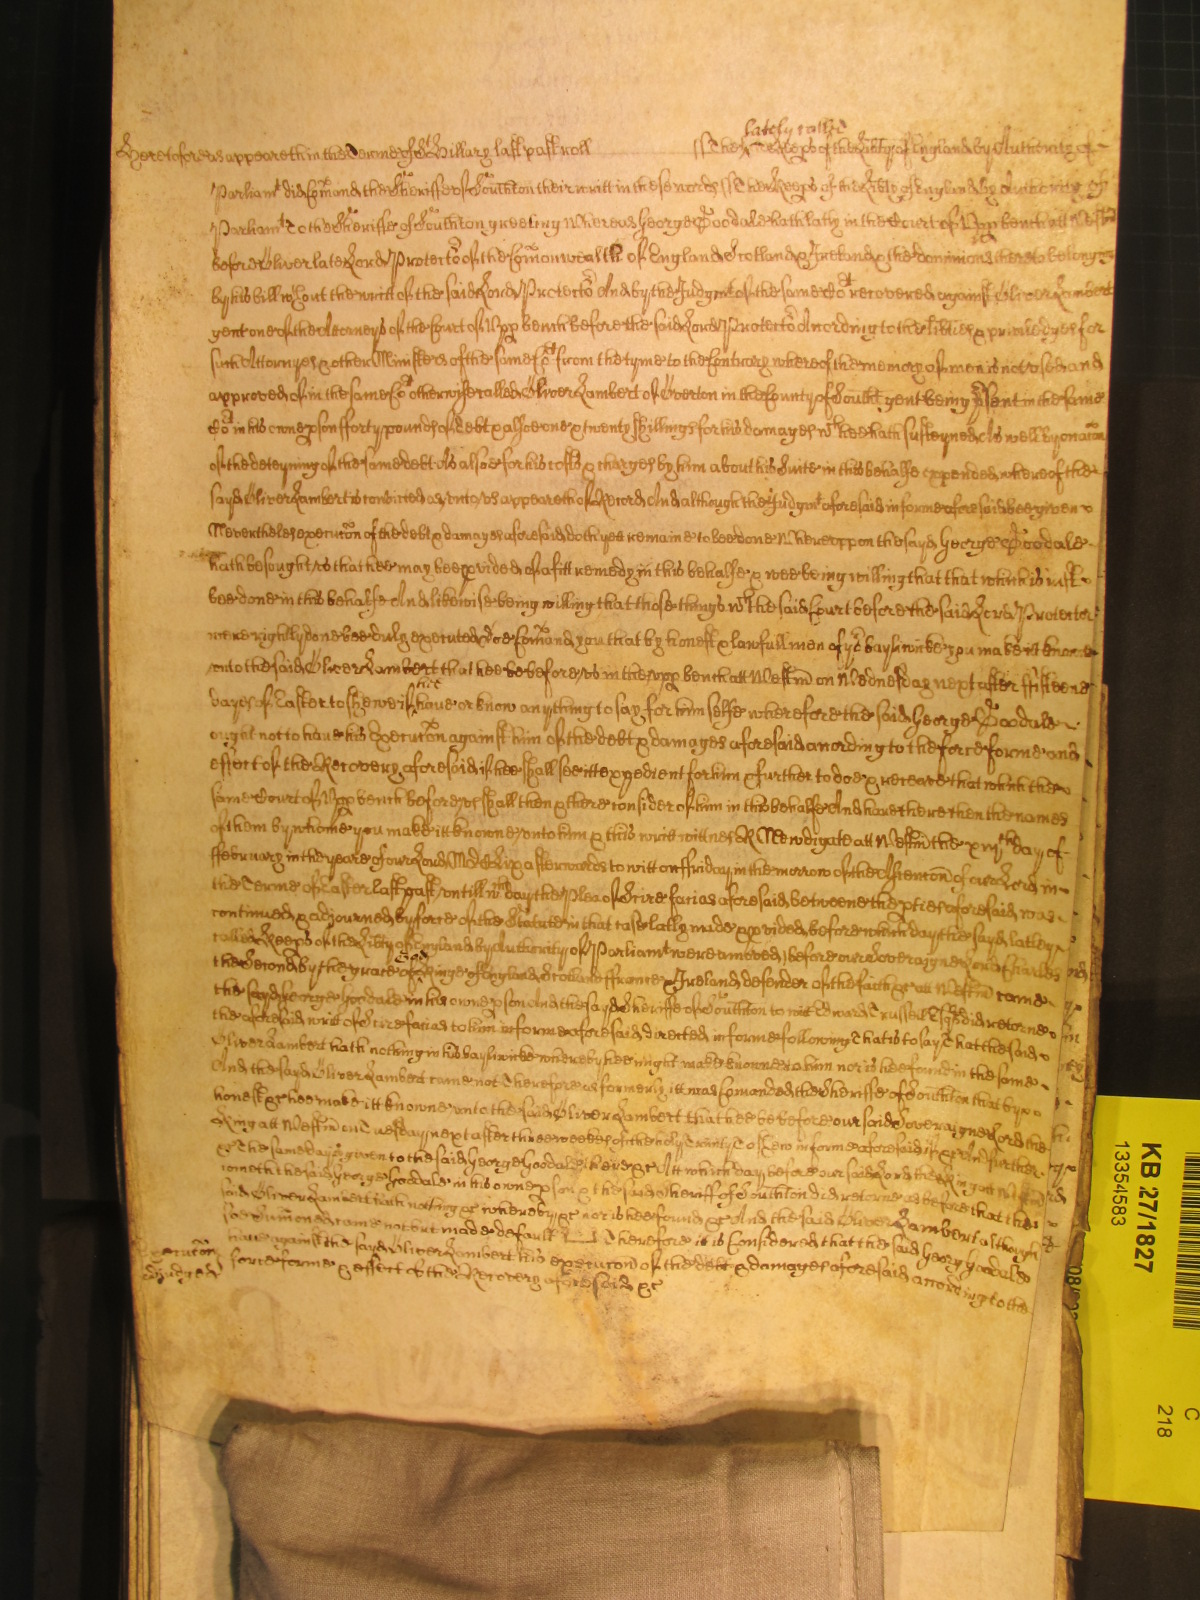 lately called
Heretofore as appeareth in the Terme of St Hillary last past roll ss The Keeps of the Libty of England by Authority of
Parliamt did Comand the Sheriffe of Southton their writt in these words ss The Keeps of the Libty of England by Authority of
Parliamt To the Sheriffe of Southton greeting Whereas George Goodale hath lately in the Court of Upp bench att Westm
before Oliver late Lord Protector of the Comonwealth of England Scotland & Ireland & the dominions thereto belonginge
by his bill wthout the writt of the said Lord Protector And by the Judgmt of the same Cort recovered against Oliver Lambert
gent one of the Attorneys of the Court of Upp bench before the said Lord Protector According to the libties & priviledges for
such Attornyes & other Ministers of the same Cort from the tyme to the Contrary whereof the memory of man is not vsed and
approved of in the same Cort otherwise called Oliver Lambert of Overton in the County of Southt gent being psent in the same
Cort in his owne pson fforty pounds of debt & alsoe one & twenty shillings for his damages wch hee hath susteyned As well by occacon
of the deteyning of the same debt As alsoe for his costs & charges by him about his suite in this behalfe expended whereof the
sayd Oliver Lambert is convicted as vnto vs appeareth of Record And although the Judgmt aforesaid in forme aforesaid bee given
Neverthelesse execucon of the debt & damages aforesaid doth yet remaine to bee done Whereuppon the sayd George Goodale
hath besought vs that hee may bee pvided of a fitt remedy in this behalfe & wee being willing that that which is just
bee done in this behalfe And likewise being willing that those things wch the said Court before the said Lord Protector
were rightly done bee duly executed doe Comand you that by honest & lawfull men of yor bayliwicke you make it knowne
vnto the said Oliver Lambert that hee be before vs in the upp bench att Westm on Wednesday next after ffifteene
hee
dayes of Easter to shewe if have or know anything to say for himselfe wherefore the said George Goodale
ought not to have his Execucon against him of the debt & damages aforesaid according to the force forme and
effect of the Recovery aforesaid if hee shall see itt expedient for him & further to doe & receave that which the
same Court of Upp bench before vs shall then & there consider of him in this behalfe And have there then the names
of them by whome you make itt knowne vnto him & this writ wittnes R Newdigate att Westm the xijth day of
ffebruary in the yeare of our Lord MDCLix afterwards to witt on ffriday in the morrow of the Assencon of our Lord in
the Terme of Easter last past vntill wch day the Plea of Scire facias aforesaid betweene the pties aforesaid was
continued & adjourned by force of the Statute in that case lately made & pvided before which day the sayd lately
called Keeps of the Libty of England by Authority of Parliamt were amoved before our Soveraigne Lord Charles
God
the Second by the grace of Kinge of England Scotland ffrance & Ireland defender of the faith &c att Westm came
the sayd George Goodale in his owne pson And the sayd Sheriffe of Southton to witt Edward Esq did retorne
the aforesaid writ of Scire facias to him in forme aforesaid directed in forme following That is to say That the said
Oliver Lambert hath nothing in his bayliwicke whereby hee might make knowne to him nor is hee found in the same
And the sayd Oliver Lambert came not Therefore as formerly itt was Comanded the Sheriffe of Southton that by
honest &c hee make itt knowne vnto the said Oliver Lambert that hee be before our said Soveraigne Lord the
King att Westm on Tuesday next after three weekes of the holy Trinity To shew in forme aforesaid if &c And further
&c The same day is given to the said George Goodale there &c Att which day before our said Lord the King att Westm
cometh the said George Goodale in his owne pson & the said Sheriff of Southton did retorne as before that the
said Oliver Lambert hath nothing &c whereby &c nor is hee found &c And the said Oliver Lambert although
soe sumoned came not but made default Therefore it is Considered that the said George Goodale
have against the sayd Oliver Lambert his execucon of the debt & damages aforesaid according to the
force forme & effect of the Recovery aforesaid &c
execucon
adiudged
KB 27/1827
13354583
C
218